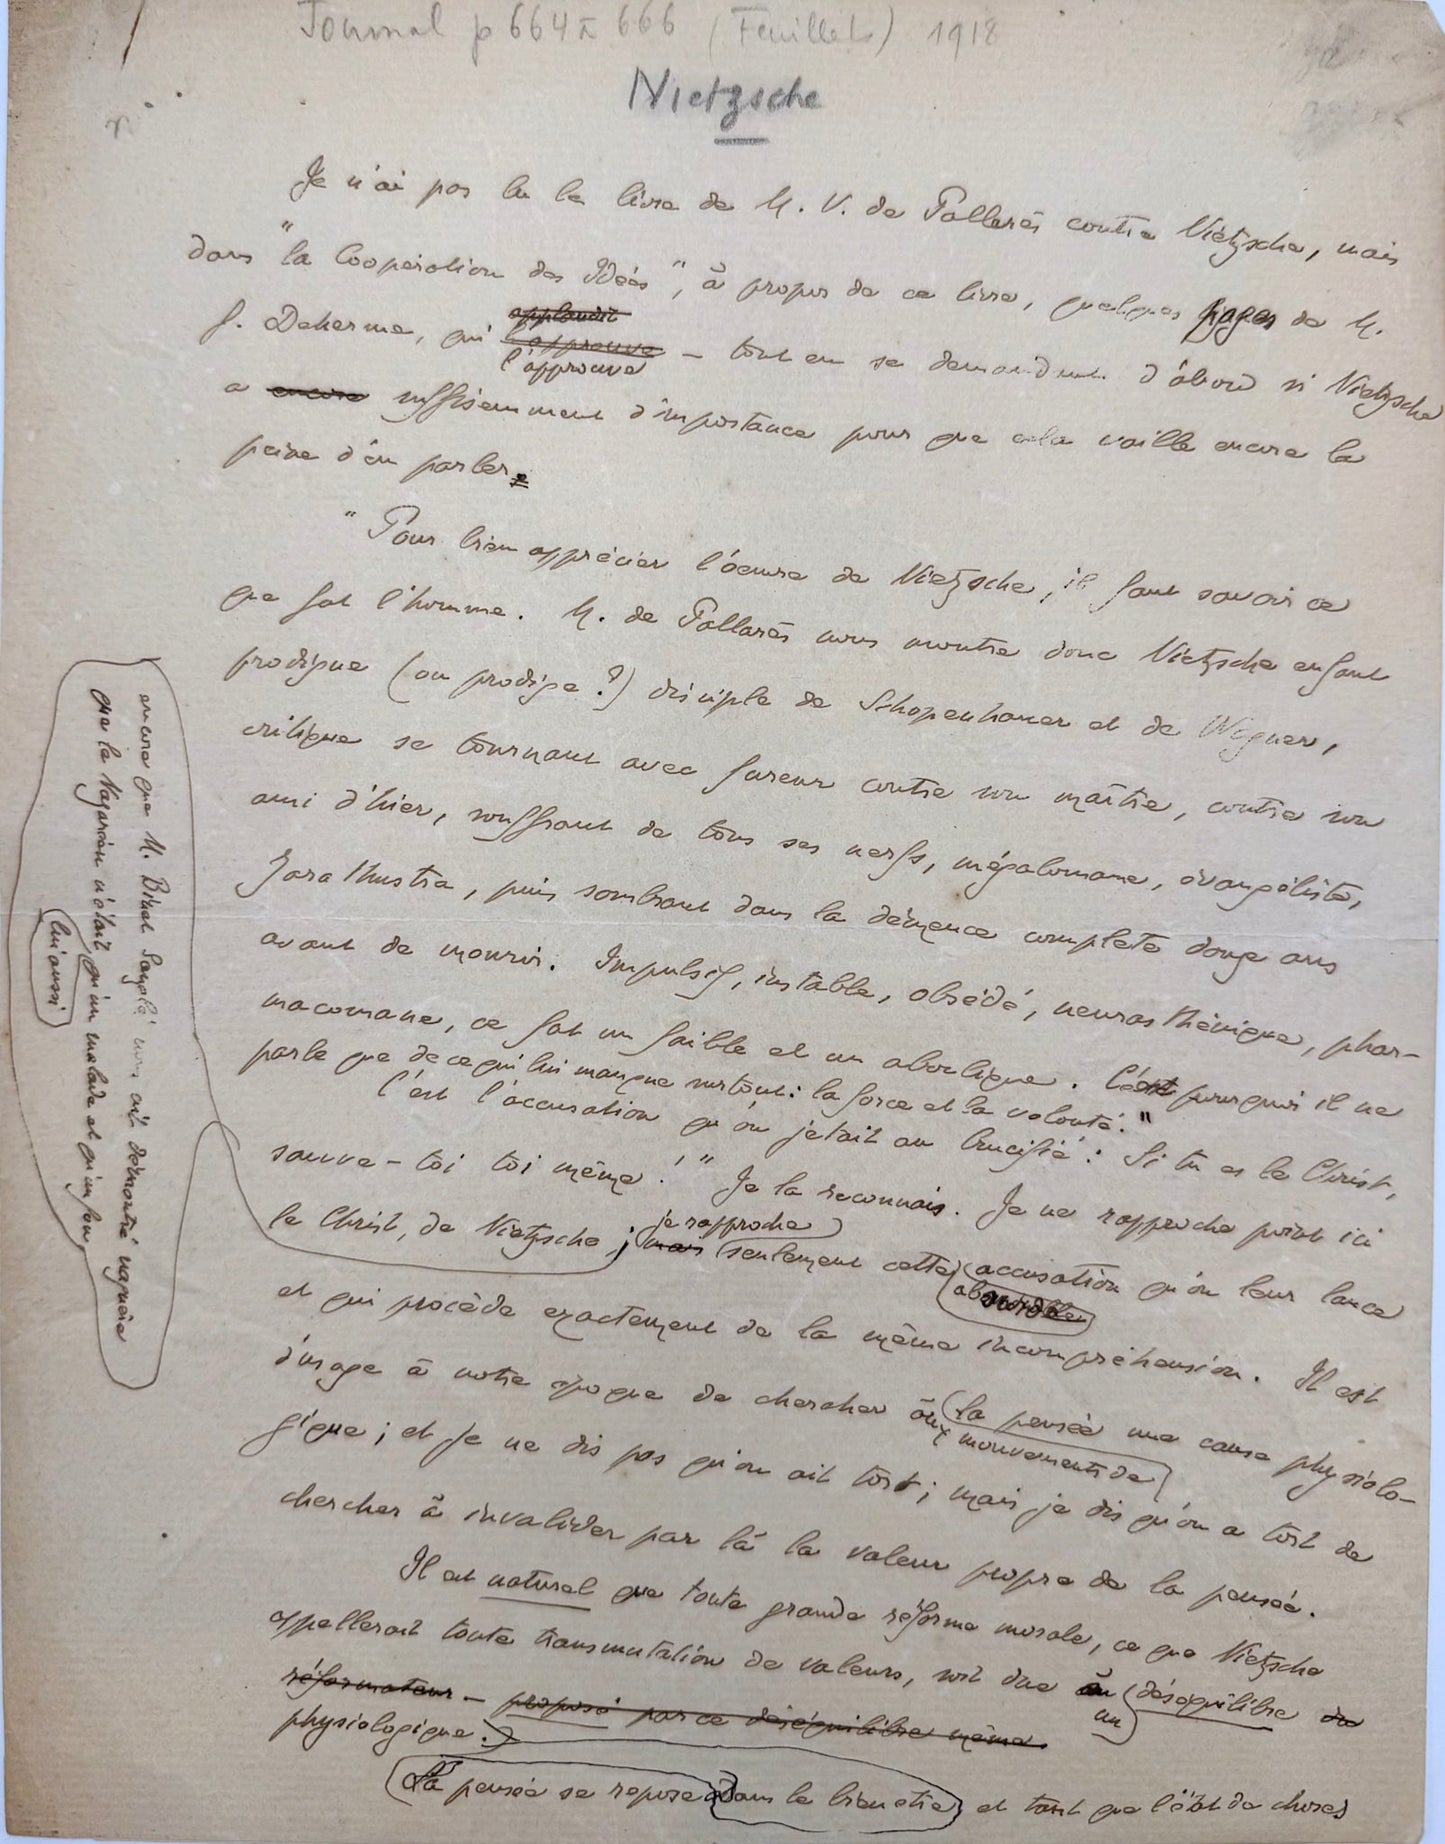 Journal p 664 à 666 (Feuillets) 1918
Nietzsche
Je n'ai pas lu le livre de M. V. de Pallarès contre Nietzsche, mais
dans "la Coopération des Idées", à propos de ce livre, quelques pages de M.
G. Deherme, qui applaudit l'approuve l'approuve — tout en se demandant d'abord si Nietzsche
a encore suffisamment d'importance pour que cela vaille encore la
peine d'en parler.
"Pour bien apprécier l'œuvre de Nietzsche, il faut savoir ce
que fut l'homme. M. de Pallarès nous montre donc Nietzsche enfant
prodigue (ou prodige ?) disciple de Schopenhauer et de Wagner,
critique se tournant avec fureur contre son maître, contre son
ami d'hier, souffrant de tous ses nerfs, mégalomane, évangéliste,
Zarathustra, puis sombrant dans la démence complète douze ans
avant de mourir. Impulsif, instable, obsédé, neurasthénique, phar-
macomane, ce fut un faible et un aboulique. C'est pourquoi il ne
parle que de ce qui lui manque surtout : la force et la volonté."
C'est l'accusation qu'on jetait au Crucifié : Si tu es le Christ,
sauve-toi toi même !" Je la reconnais. Je ne rapproche point ici
le Christ, de Nietzsche ; mais je rapproche seulement cette accusation qu'on leur lance
absurde
et qui procède exactement de la même incompréhension. Il est
d'usage à notre époque de chercher aux la pensée une cause physiolo-
mouvements de
gique ; et je ne dis pas qu'on ait tort ; mais je dis qu'on a tort de
chercher à invalider par là la valeur propre de la pensée.
Il est naturel que toute grande réforme morale, ce que Nietzsche
appellerait toute transmutation de valeurs, soit due à un déséquilibre du
réformateur — proposé par ce déséquilibre même.
physiologique.
La pensée se repose dans le bien etre et tant que l'état de choses
encore que M. Binet Sanglé nous ait démontré naguère
que le Nazaréen n'était qu'un malade et qu'un fou,
lui aussi